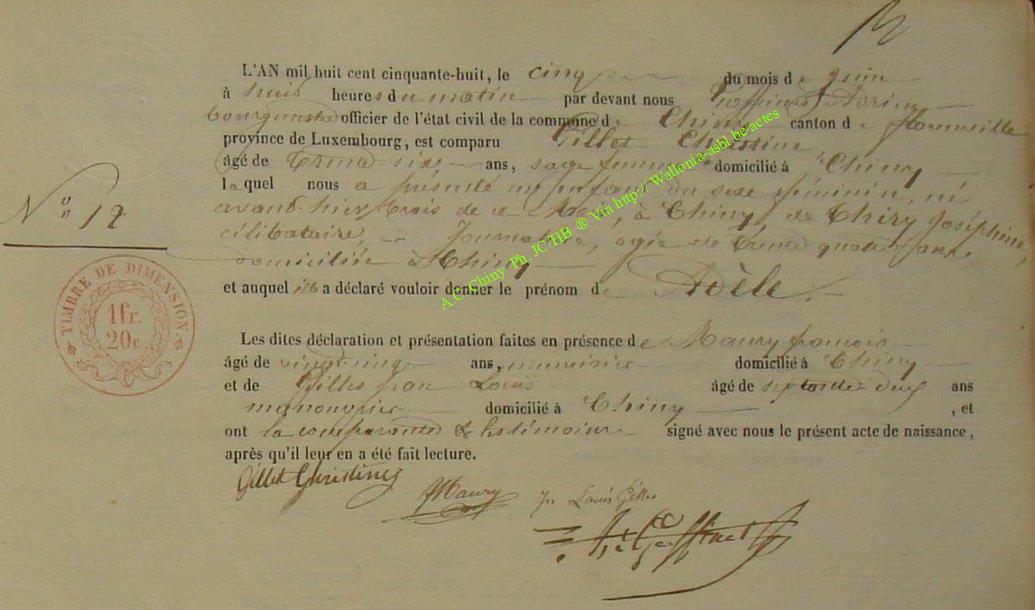 L'AN mil huit cent cinquante-huit, le cinq du mois de juin
à huit heures du matin par devant nous
bourgmestre officier de l'état civil de la commune de Chiny canton de Florenville
province de Luxembourg, est comparu Gillet Christine,
âgé de trente-six ans, sage femme domicilié à Chiny
laquel nous a présenté un enfant du sexe féminin, né
avant-hier trois de ce à Chiny, de Thiry Joséphine,
célibataire Journalière, agée de trente quatre ans
domiciliée à Chiny
et auquel elle a déclaré vouloir donner le prénom de Adèle.
N° 12
TIMBRE DE DIMENSION.
1 fr.
20 c.
Les dites déclaration et présentation faites en présence de Maury françois
âgé de vingt cinq ans, menuisier domicilié à Chiny
et de Gilles Jean Louis âgé de septante deux ans
manouvrier domicilié à Chiny , et
ont la comparante & les témoins signé avec nous le présent acte de naissance,
après qu'il leur en a été fait lecture.
Gillet Christine
Maury
Jn Louis Gilles
A.C. Chiny Ph. JC/HB ® Via http://Wallonia-asbl.be/actes